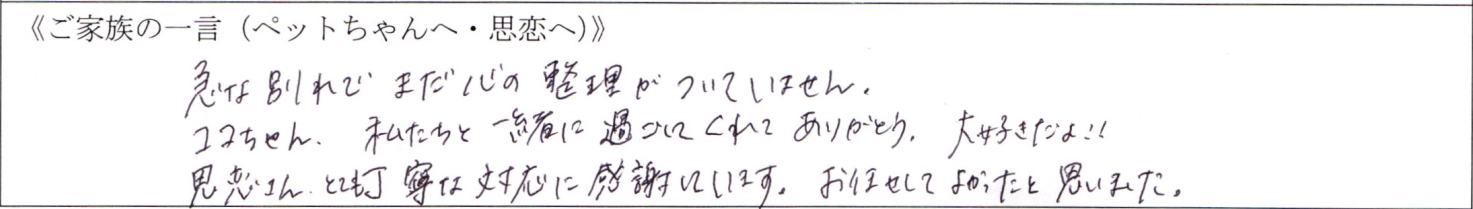 《ご家族の一言（ペットちゃんへ・思恋へ）》
急な別れで まだ心の 整理が ついていません。
ココちゃん、私たちと 一緒に 過ごしてくれて ありがとう。大好きだよ!!
思恋さん、とても丁寧な 対応に 感謝しています。お任せして よかったと 思いました。